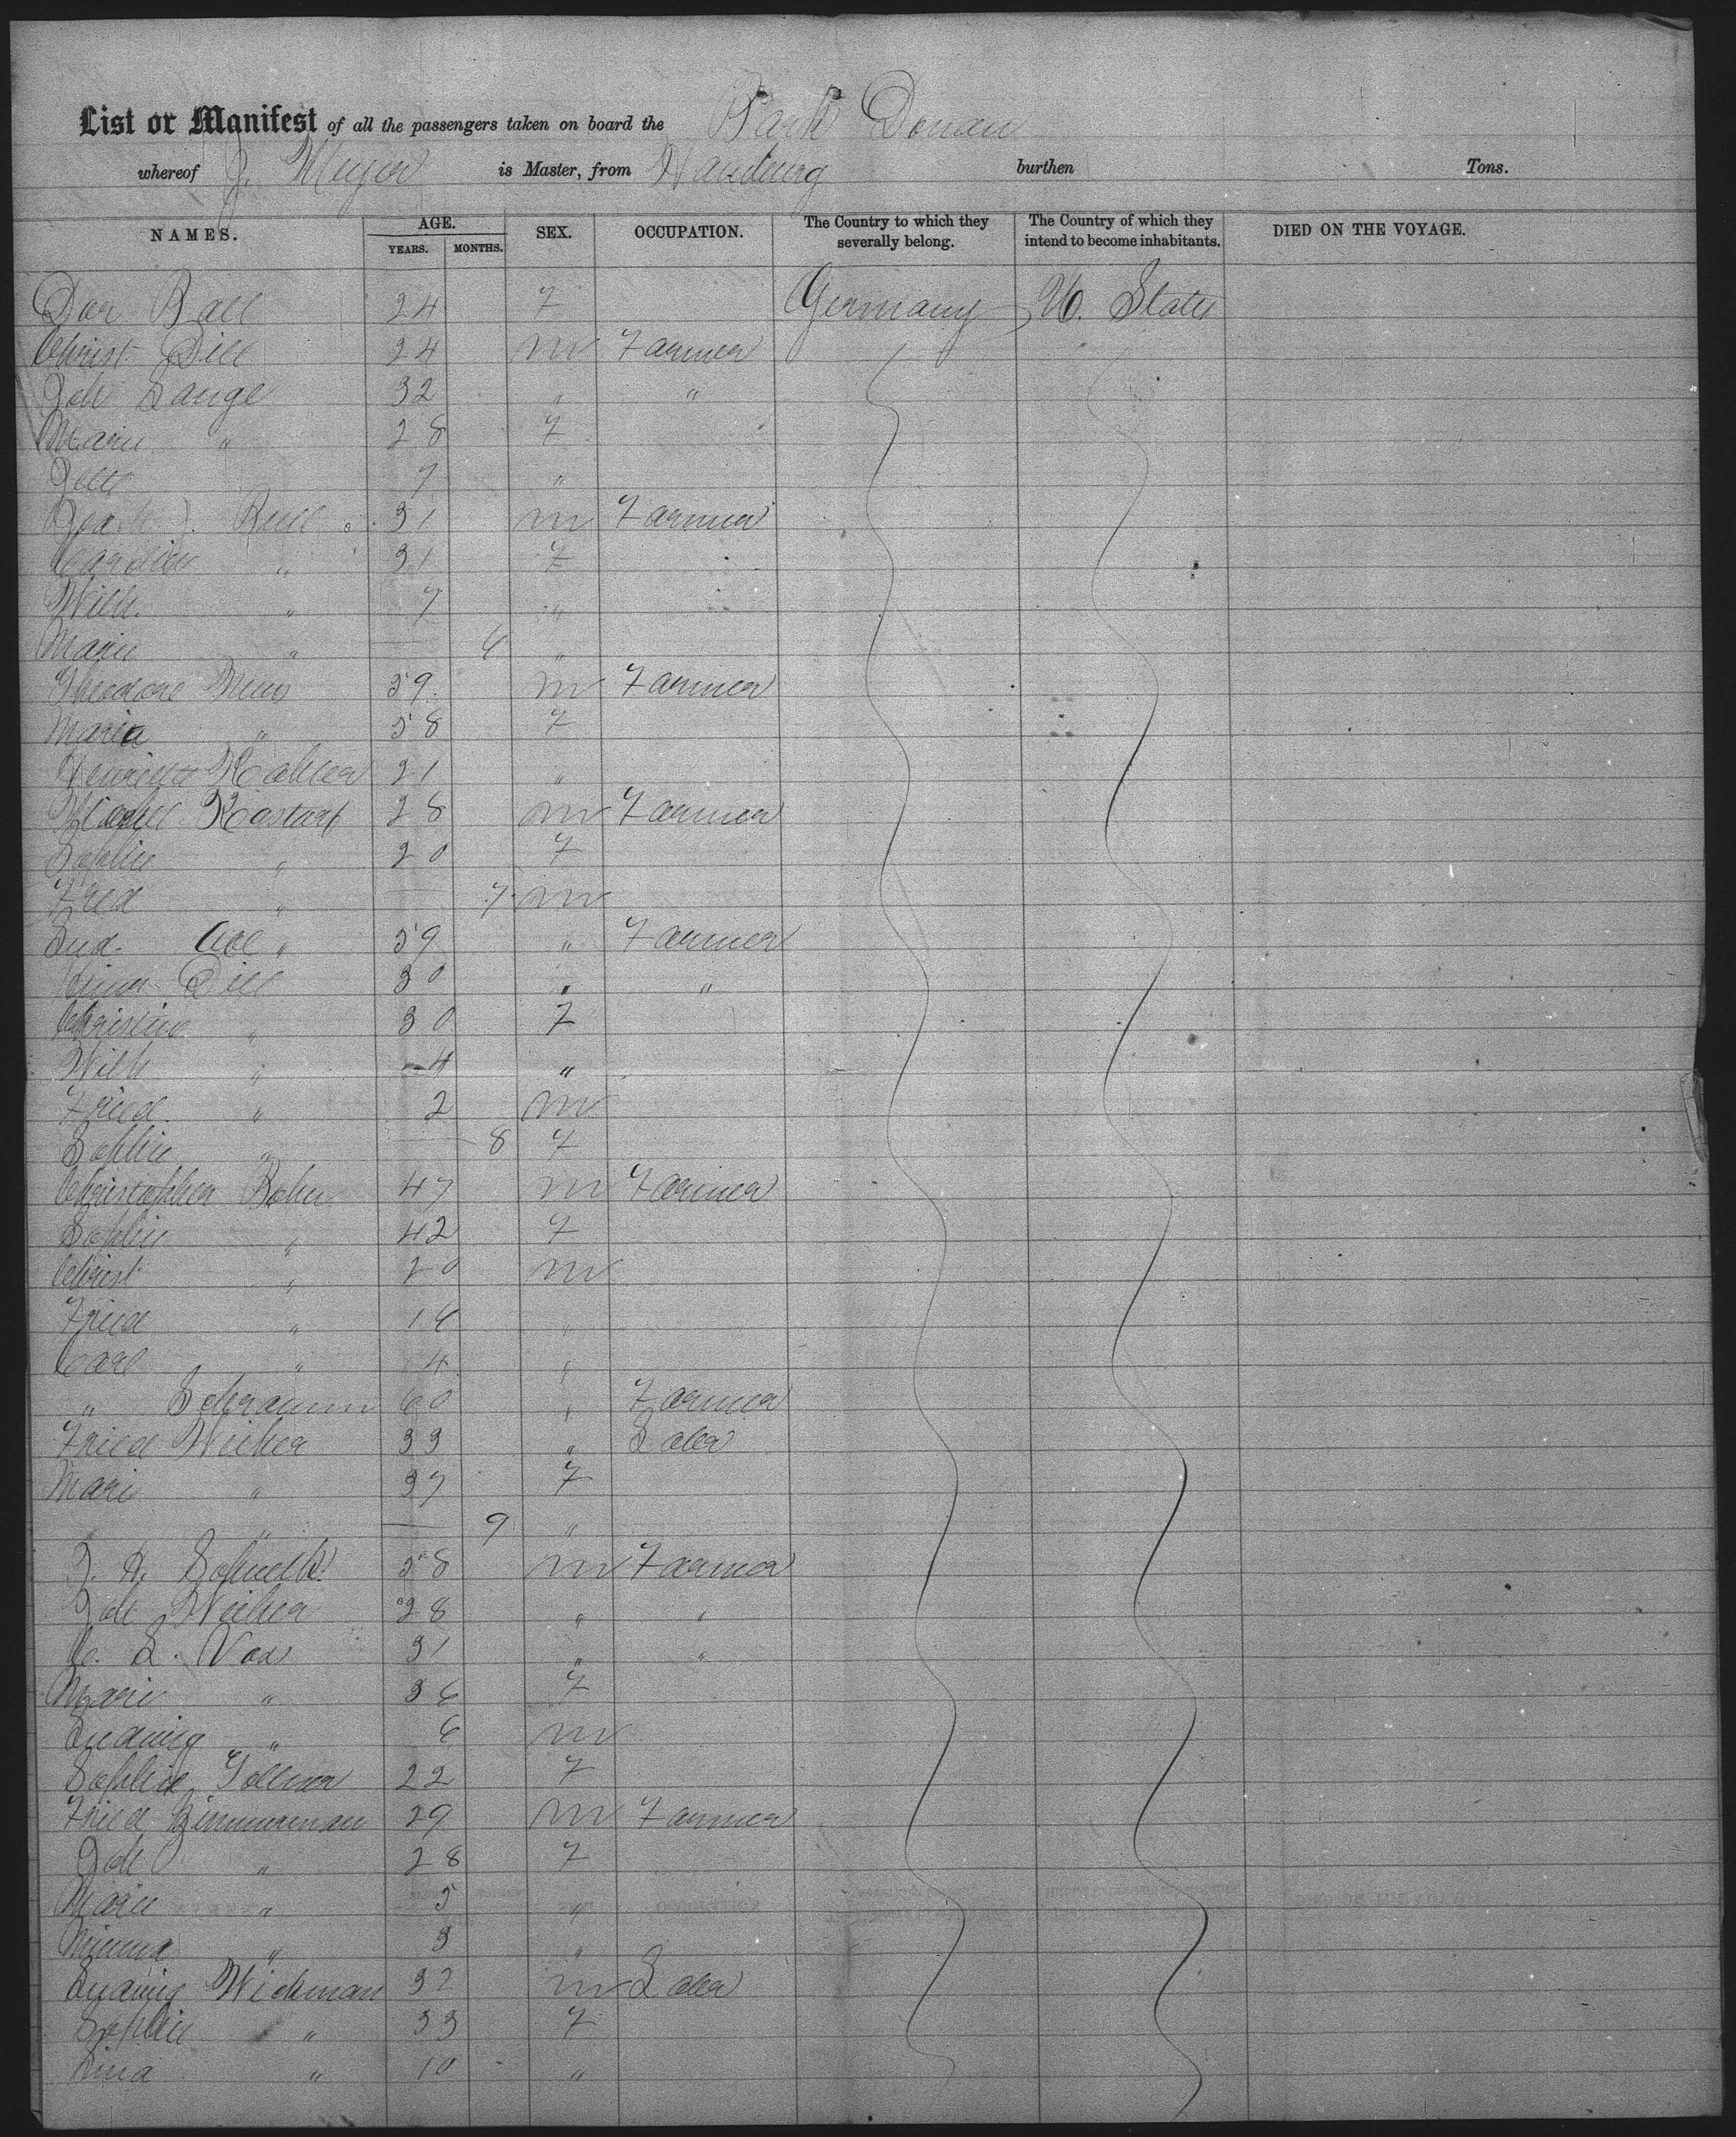 List or Manifest of all the passengers taken on board the Bark Donau
whereof J. Meyer is Master, from Hamburg burthen Tons.
NAMES. AGE. YEARS. MONTHS. SEX. OCCUPATION. The Country to which they severally belong. The Country of which they intend to become inhabitants. DIED ON THE VOYAGE.
Dor Ball 24 F Germany U. States
Christ Dill 24 m Farmer
Joh Lange 32 " "
Marie " 28 F
9 "
Bull 31 m Farmer
Caroline " 31 F
Wilh. " 7 "
Marie " — 6 "
Theodore 59 m Farmer
Maria " 58 F
Henrietta Kahler 21 "
28 m Farmer
Sophie " 20 F
Fred " — 7 m
Lud. " 59 " Farmer
Dill 30 " "
Christine " 30 F
Wilh " 4 "
Fried " 2 m
Sophie " — 8 F
Christopher Bohn 47 m Farmer
Sophie " 42 F
Christ " 20 m
Fried " 16 "
Carl " 4 "
" Schramm 60 " Farmer
Fried Wicher 33 " Labr
Mari " 37 F
" " — 9 "
58 m Farmer
Joh Wicher 28 " "
C. L. Voss 31 " "
Marie " 36 F
Ludwig " 6 m
Sophie 22 F
Fried Zimmerman 29 m Farmer
" 28 F
Marie " 5 "
Minna " 3 "
Ludwig Wichman 32 m Labr
Sophie " 33 F
Lina " 10 "